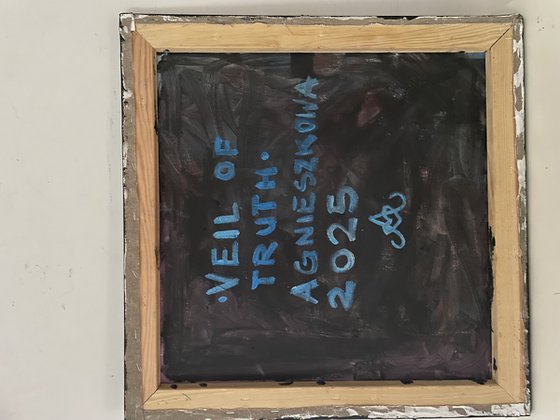 ·VEIL OF
TRUTH·
AGNIESZKOWA
2025